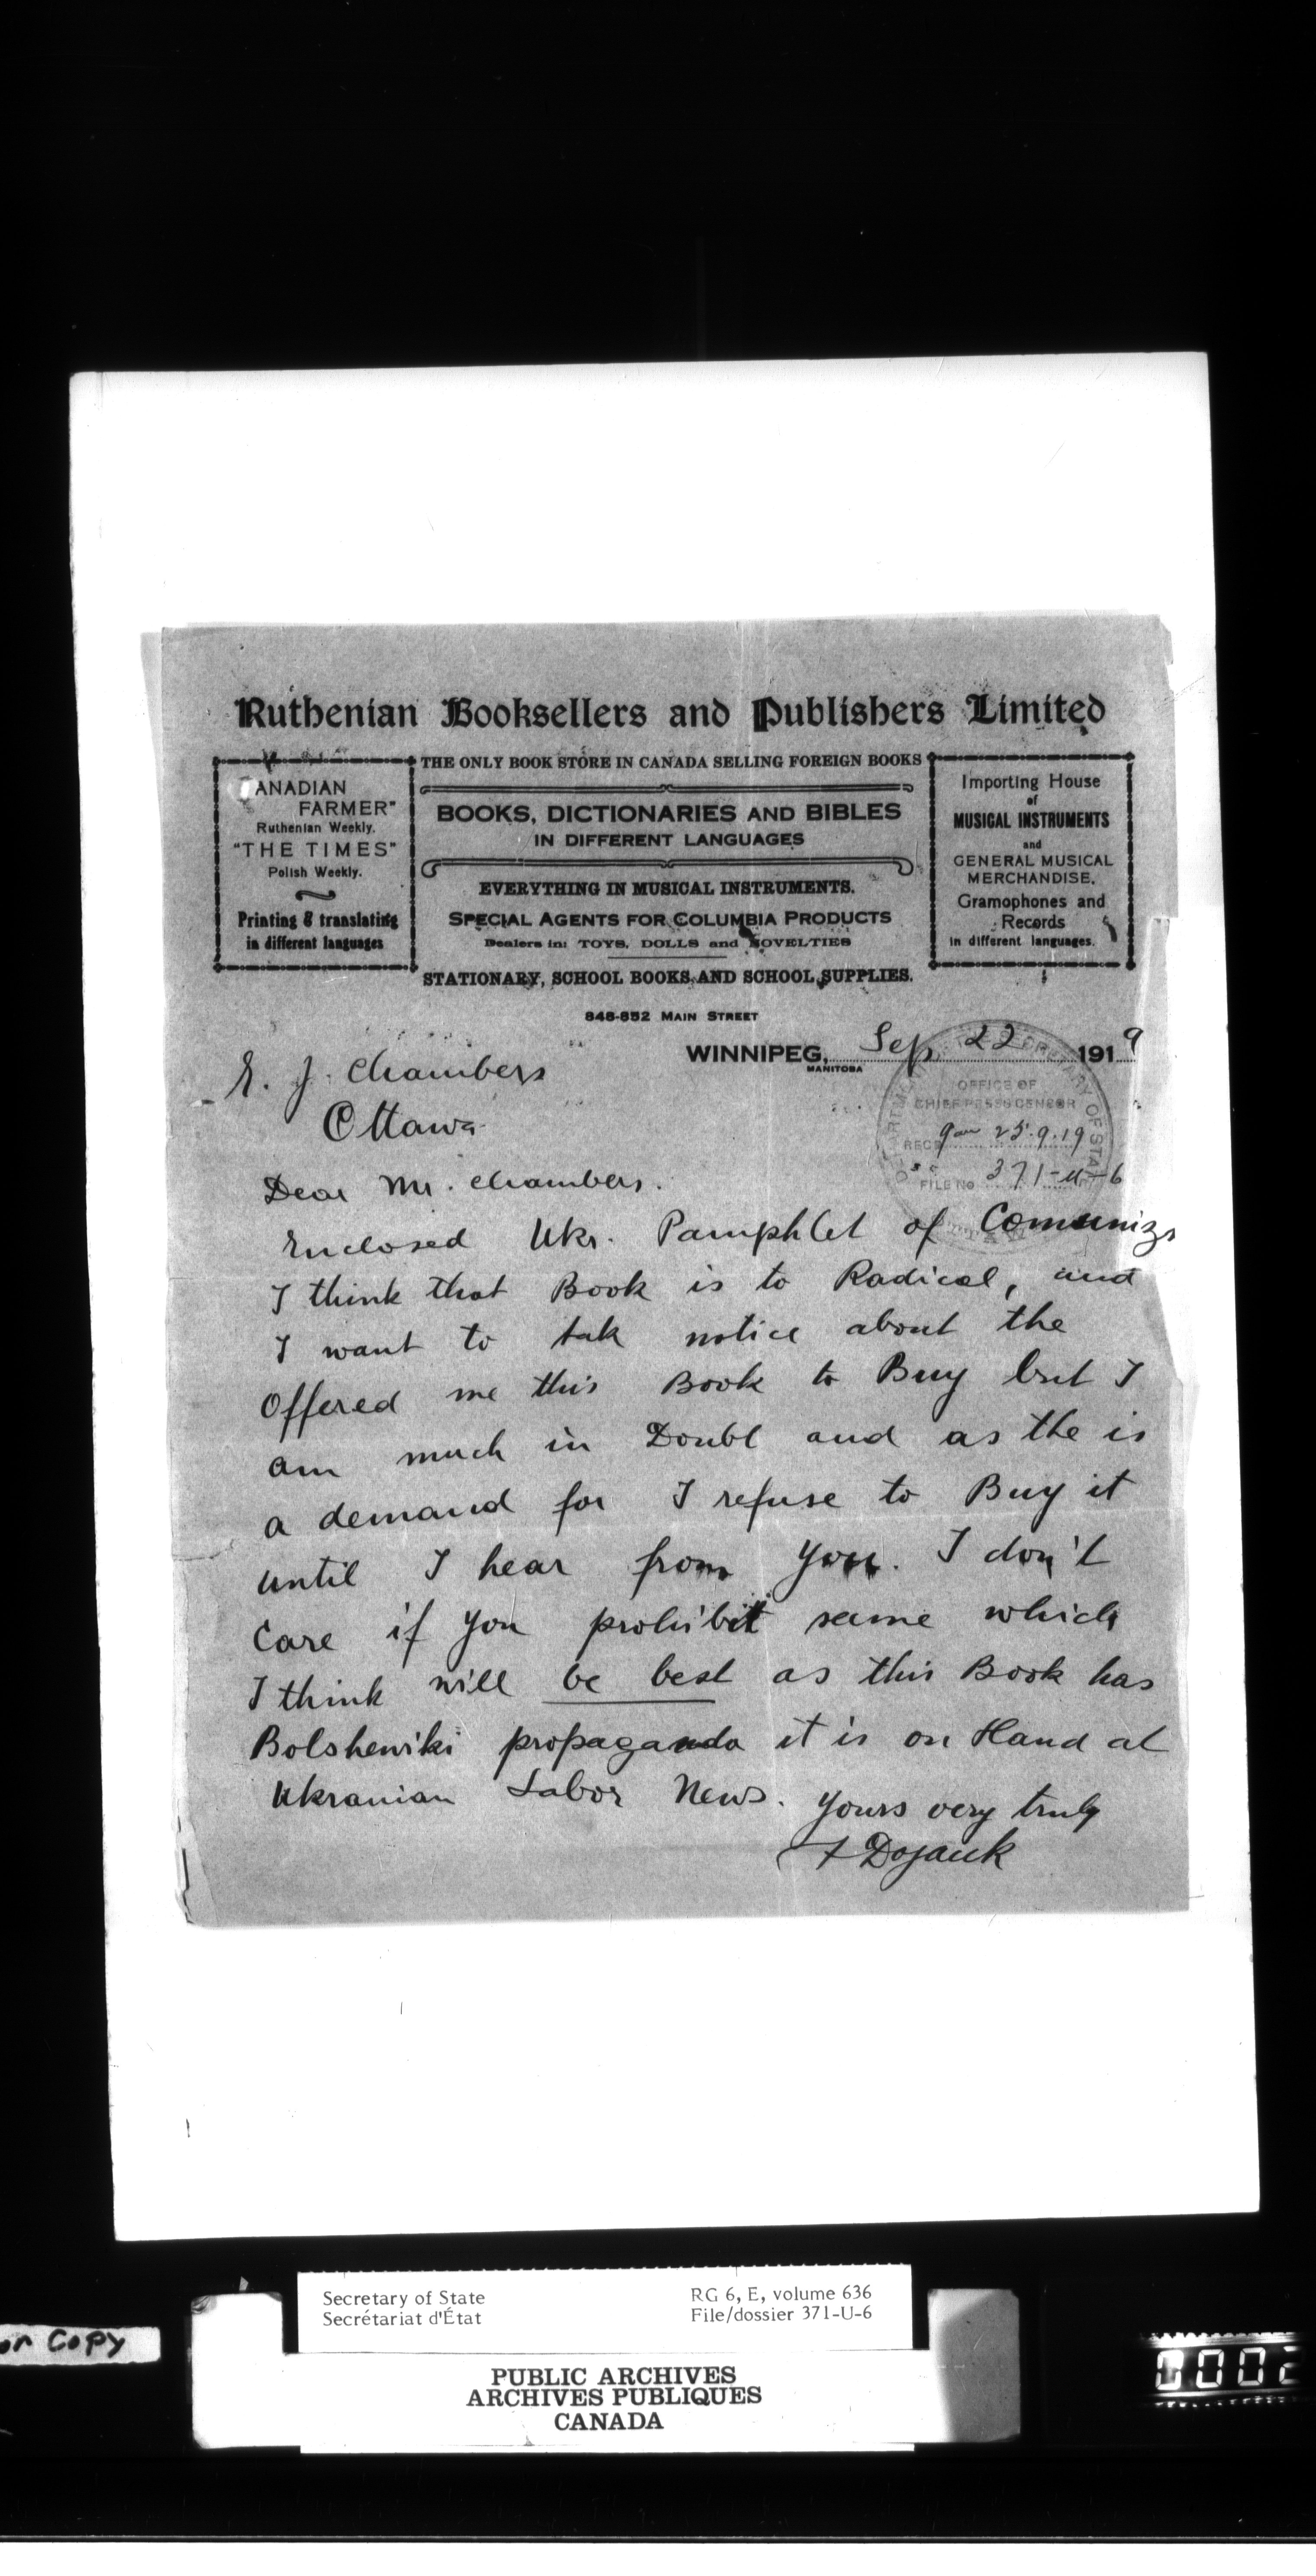 Ruthenian Booksellers and Publishers Limited
THE ONLY BOOK STORE IN CANADA SELLING FOREIGN BOOKS
ANADIAN
FARMER"
Ruthenian Weekly.
"THE TIMES"
Polish Weekly.
Printing & translating
in different languages
BOOKS, DICTIONARIES AND BIBLES
IN DIFFERENT LANGUAGES
EVERYTHING IN MUSICAL INSTRUMENTS.
SPECIAL AGENTS FOR COLUMBIA PRODUCTS
Dealers in: TOYS, DOLLS and NOVELTIES
STATIONARY, SCHOOL BOOKS AND SCHOOL SUPPLIES.
Importing House
of
MUSICAL INSTRUMENTS
and
GENERAL MUSICAL
MERCHANDISE.
Gramophones and
Records
in different languages.
848-852 MAIN STREET
WINNIPEG, Sep 22 1919
MANITOBA
E. J. Chambers
Ottawa
OFFICE OF
CHIEF PRESS CENSOR
REC'D 9am 25.9.19
FILE No 371-U-6
Dear Mr. Chambers.
Enclosed Ukr. Pamphlet of Comunizm
I think that Book is to Radical, and
I want to tak notice about the
Offered me this Book to Buy but I
am much in Doubt and as the is
a demand for I refuse to Buy it
until I hear from you. I don't
Care if you prohibit same which
I think will be best as this Book has
Bolsheviki propaganda it is on Hand at
Ukranian Labor News. Yours very truly
F Dojacek
Secretary of State
Secrétariat d'État
RG 6, E, volume 636
File/dossier 371-U-6
or Copy
PUBLIC ARCHIVES
ARCHIVES PUBLIQUES
CANADA
0002